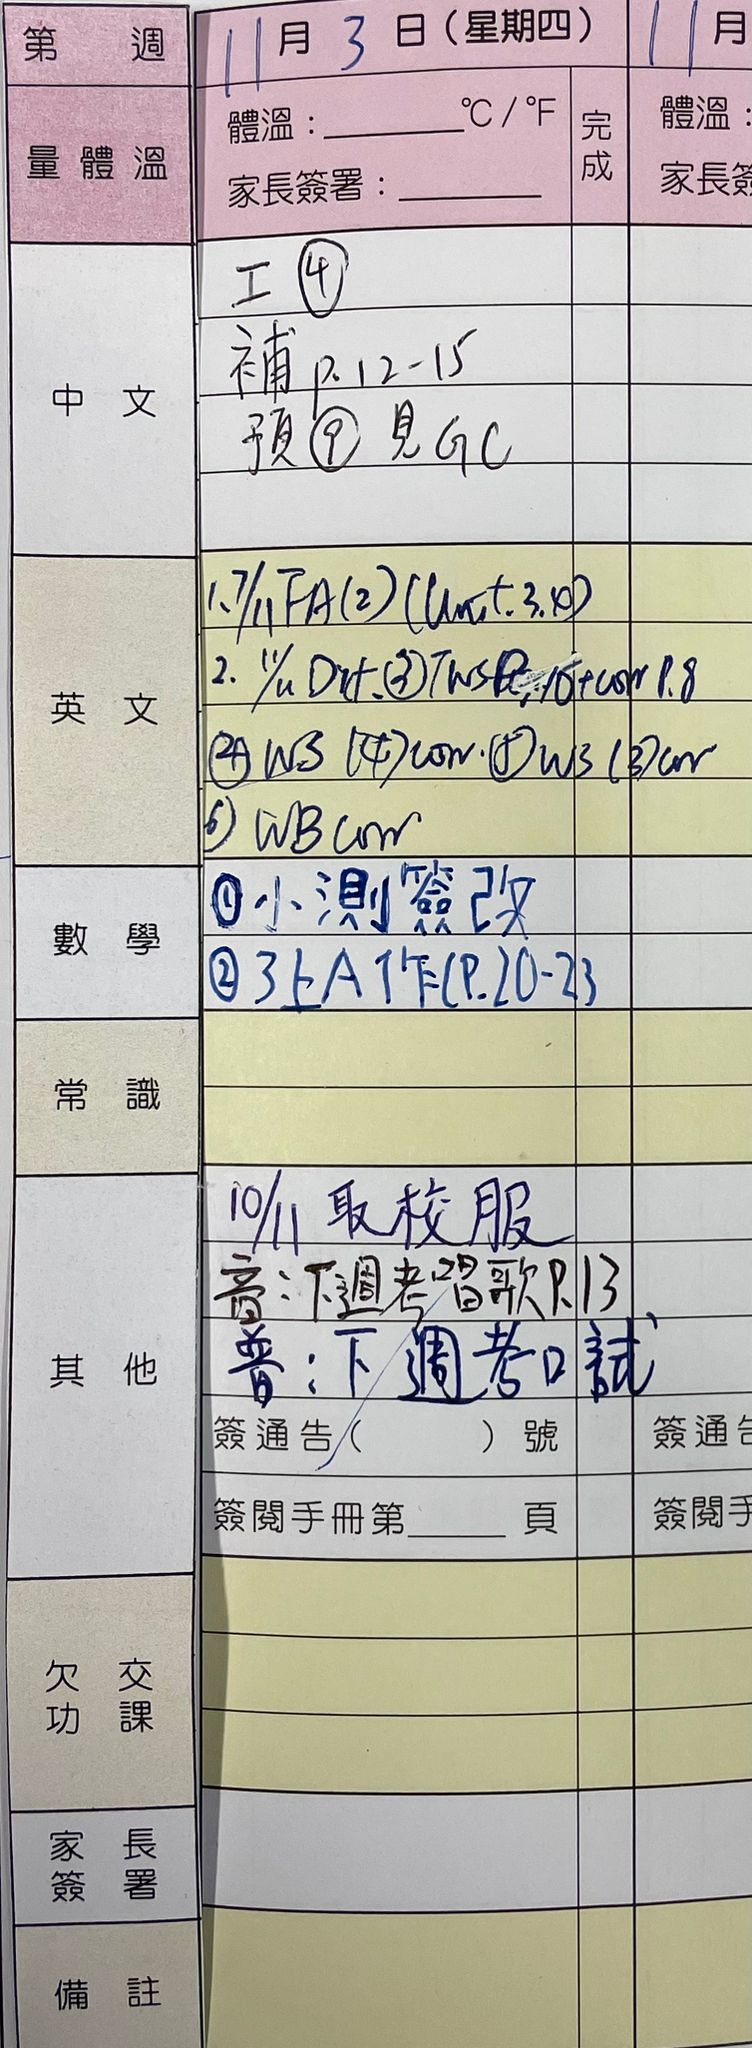 第 週 11月3日(星期四) 11月
量體溫 體溫：______℃/℉ 完成 體溫：
家長簽署：______ 家長簽
中文
工④
補 p.12-15
預⑨ 見GC
英文
1. 7/11 FA(2) (Unit. 3.4)
2. 11/11 Dict. ③ TWS 10+corr P.8
④ WS (4) corr. ⑤ WS (3) corr
6) WB corr
數學
①小測簽改
②3上A作(P.20-23
常識
其他
10/11 取校服
音：下週考唱歌P.13
普：下週考口試
簽通告( )號 簽通告
簽閱手冊第____頁 簽閱手
欠交功課
家長簽署
備註